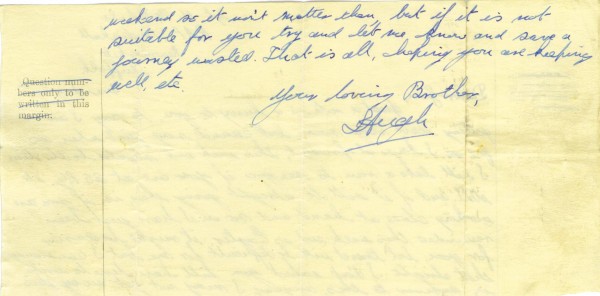 weekend so it won't matter then, but if it is not
suitable for you try and let me, know and save a
journey wasted. That is all, hoping you are keeping
well, etc.
Your loving Brother,
Hugh
Question num-
bers only to be
written in this
margin.